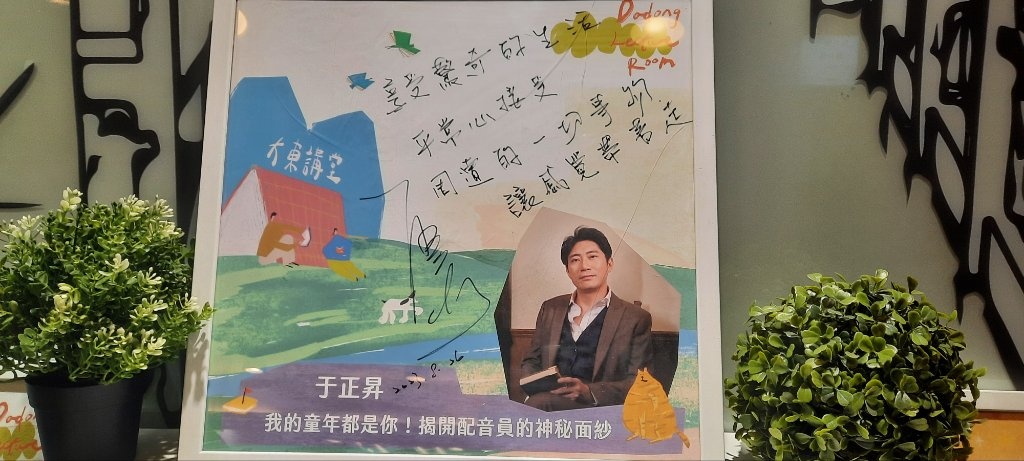 Dadong
Room
享受驚奇的生活
平常心接受
周遭的一切事物
讓感覺帶著走
大東講堂
于正昇
我的童年都是你！揭開配音員的神秘面紗